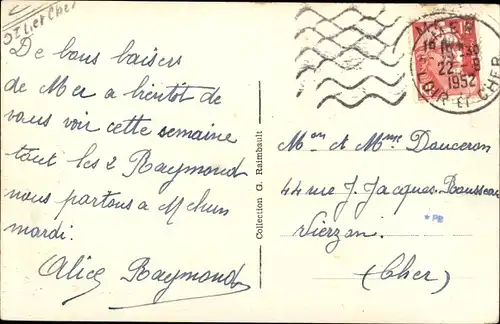 De bons baisers
de Mer a bientôt de
vous voir cette semaine
tout les 2 Raymond
nous partons a Mehun
mardi.
Alice Raymond
Collection G. Raimbault
22 - 9
1952
LOIR ET CHER
Mon et Mme Douceron
44 rue J. Jacques. Rousseau
Vierzon.
(Cher)